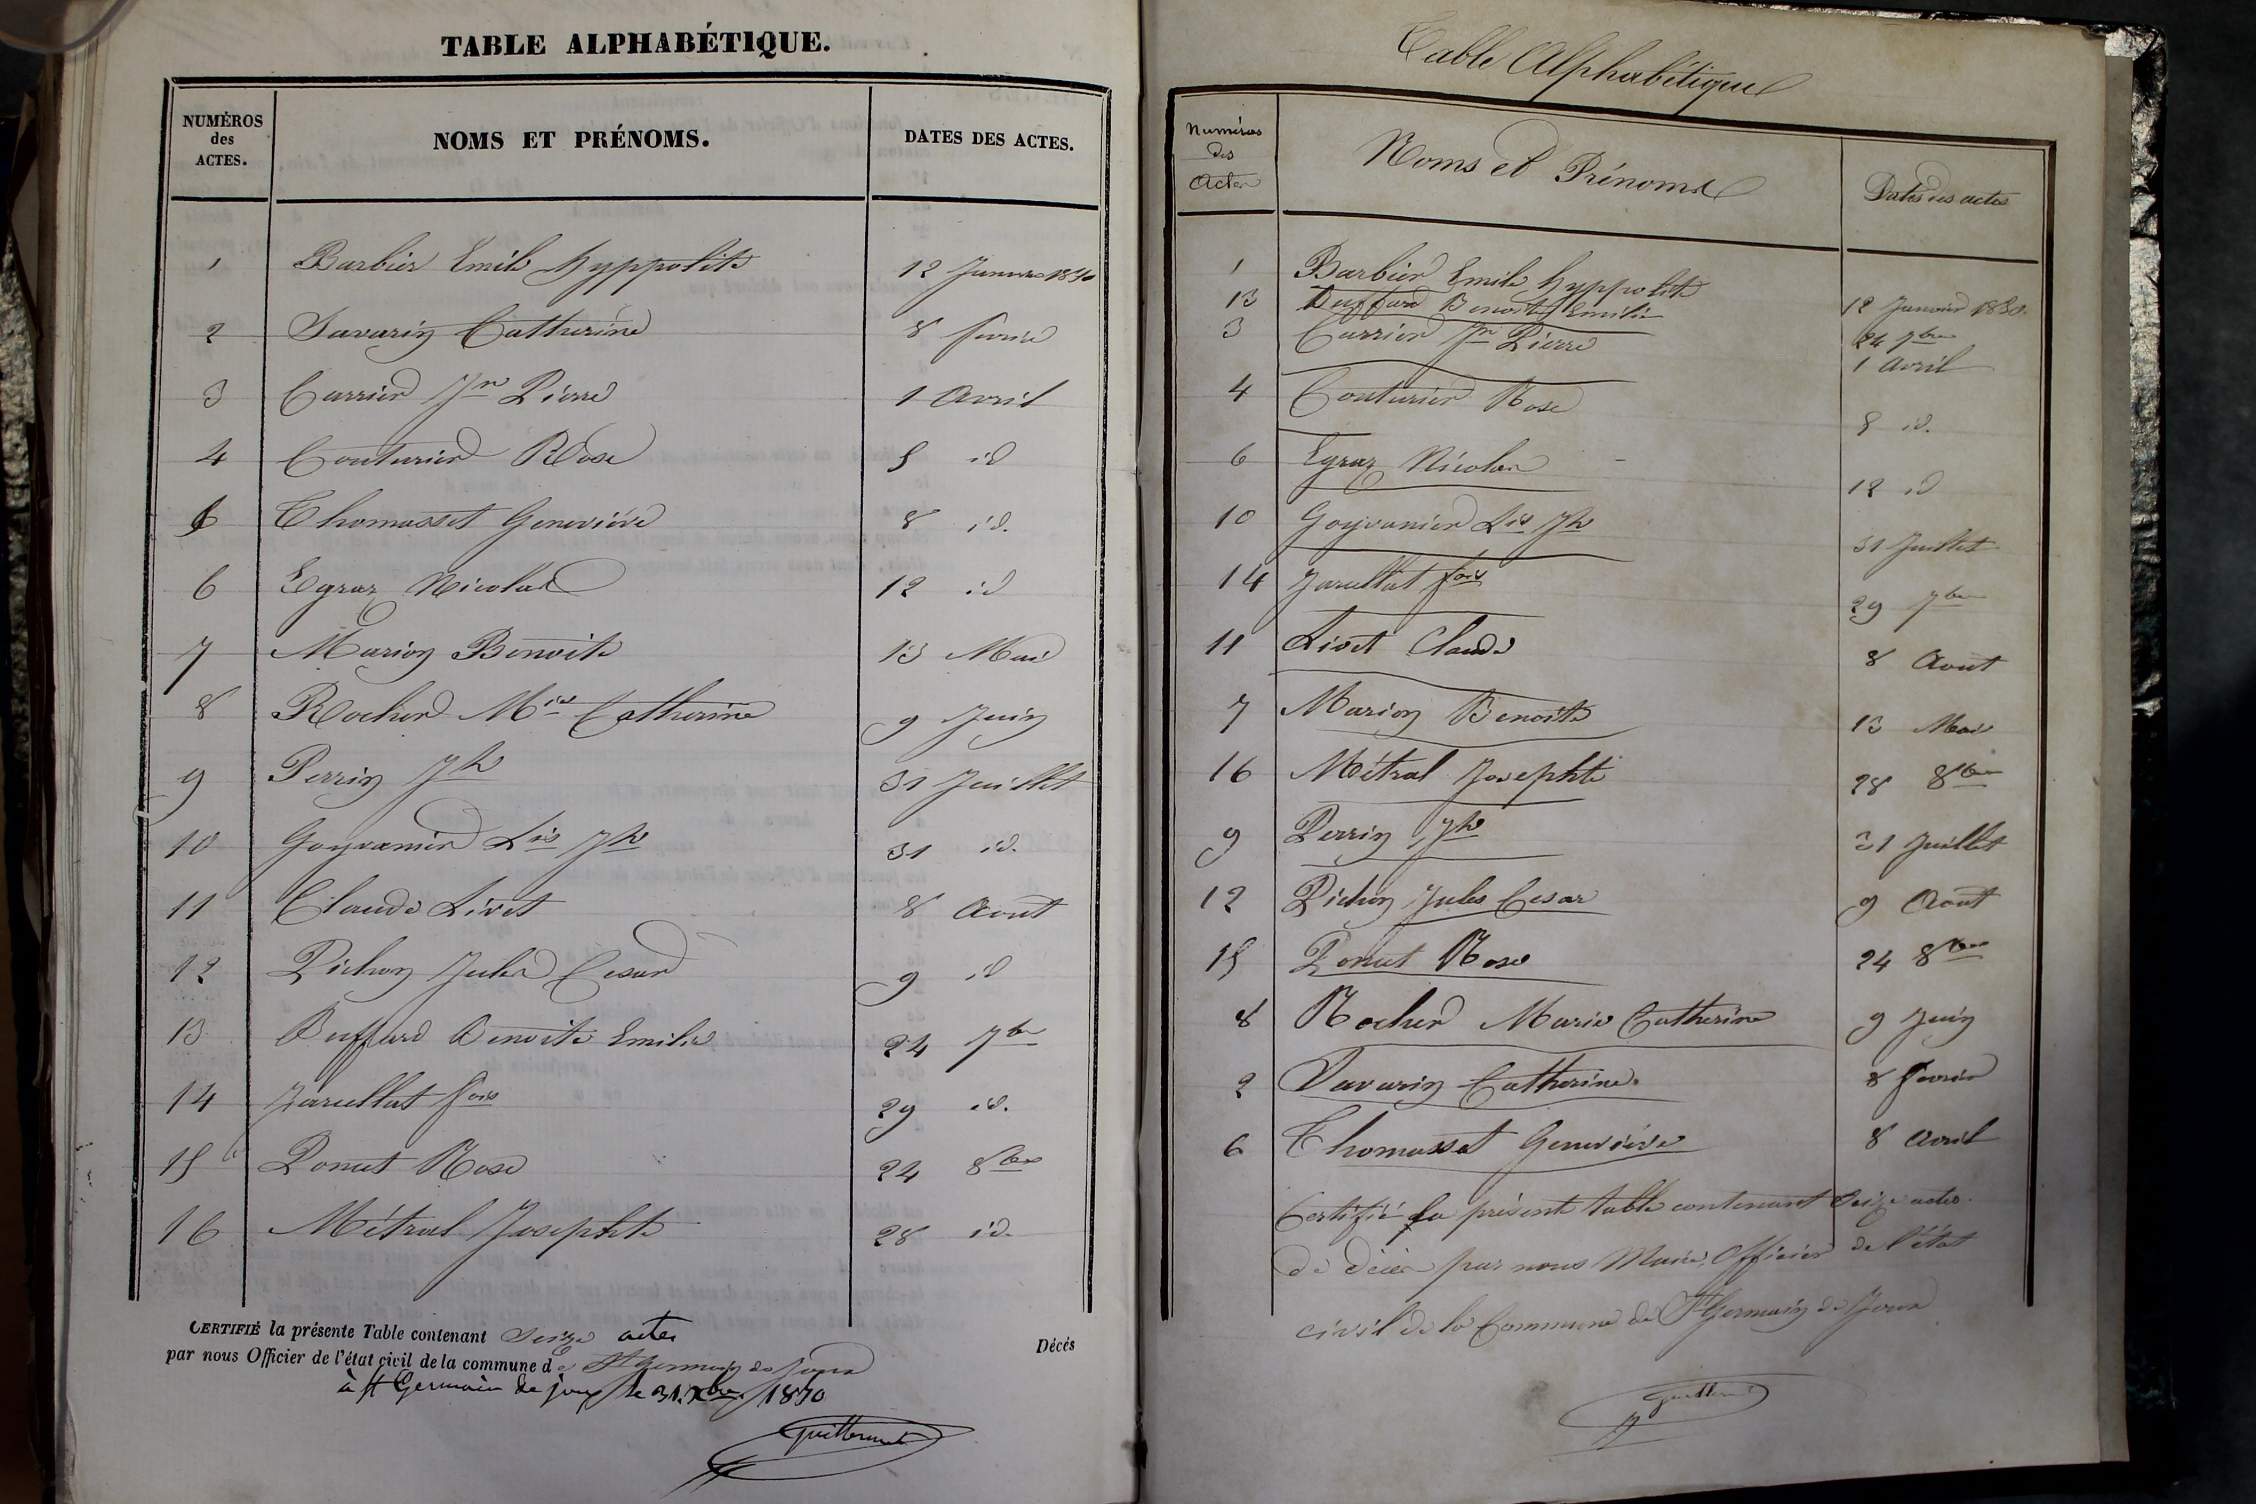 TABLE ALPHABÉTIQUE.
NUMÉROS des ACTES. NOMS ET PRÉNOMS. DATES DES ACTES.
1 Barbier Emile hyppolite 12 Janvier 1850
2 Savarin Catherine 8 fevrier
3 Carrier Jn Pierre 1 Avril
4 Couturier Rose 5 id
6 Thomasset Geneviève 8 id.
6 Egraz Nicolas 12 id
7 Marion Benoite 13 Mai
8 Rocher Mie Catherine 9 Juin
9 Perrin Jh 31 Juillet
10 Goyvanier Lis Jh 31 id.
11 Claude Livet 8 Aout
12 Pichon Jules Cesar 9 id
13 Buffard Benoite Emilie 24 7bre
14 Jarcellat fois 29 id.
15 Ponut Rose 24 8bre
16 Métral Josephte 28 id.
CERTIFIÉ la présente Table contenant Seize actes Décés
par nous Officier de l'état civil de la commune de St Germain de Joux
à St Germain de joux le 31 Xbre 1850
Table Alphabétique
Numéros des Actes Noms et Prénoms Dates des actes
1 Barbier Emile hyppolite 12 Janvier 1850.
13 Buffard Benoite Emilie 24 7bre
3 Carrier Jn Pierre 1 Avril
4 Couturier Rose 5 id.
6 Egraz Nicolas 12 id
10 Goyvanier Lis Jh 31 Juillet
14 Jarcellat fois 29 7bre
11 Livet Claude 8 Aout
7 Marion Benoite 13 Mai
16 Métral Josephte 28 8bre
9 Perrin Jh 31 Juillet
12 Pichon Jules Cesar 9 Aout
15 Ponut Rose 24 8bre
8 Rocher Marie Catherine 9 Juin
2 Savarin Catherine. 8 fevrier
6 Thomasset Geneviève 8 Avril
Certifié la présente table contenant Seize actes
de décès par nous Maire, Officier de l'état
civil de la Commune de St Germain de Joux